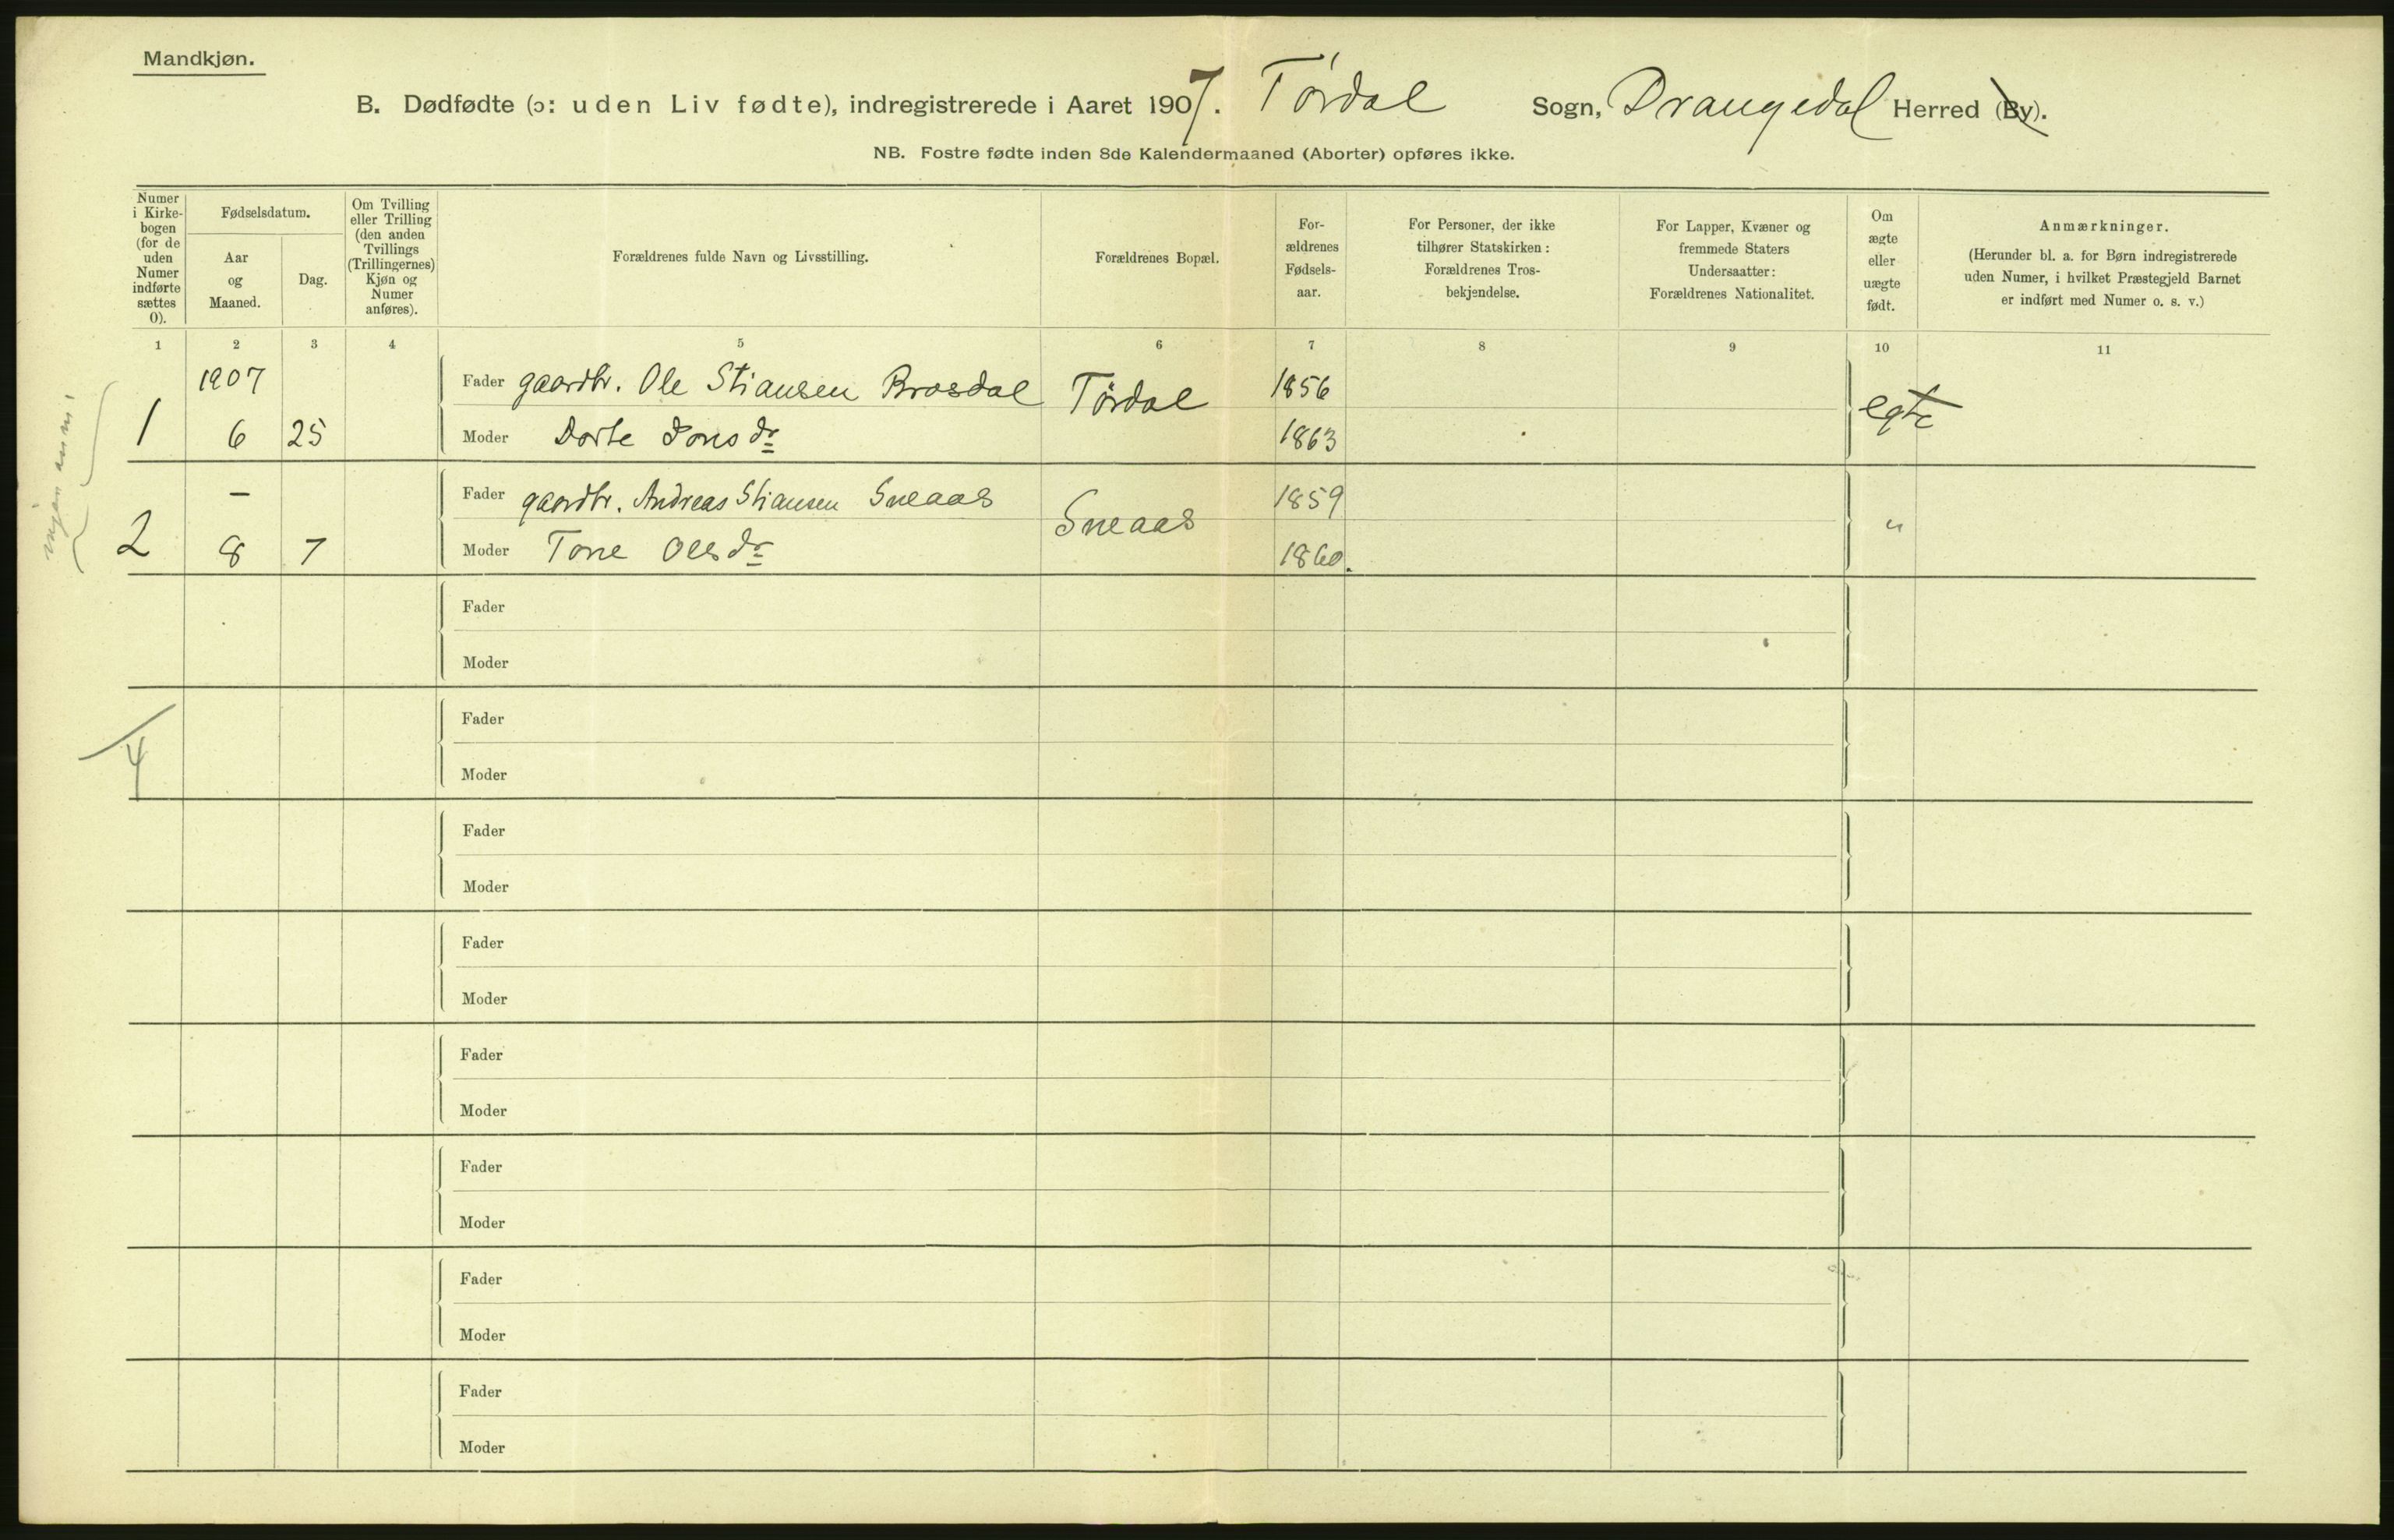 Mandkjøn.
B. Dødfødte (ɔ: uden Liv fødte), indregistrerede i Aaret 1907. Tørdal Sogn, Drangedal Herred (By).
NB. Fostre fødte inden 8de Kalendermaaned (Aborter) opføres ikke.
Numer
i Kirke-
bogen
(for de
uden
Numer
indførte
sættes
0).
Fødselsdatum.
Aar
og
Maaned.
Dag.
Om Tvilling
eller Trilling
(den anden
Tvillings
(Trillingernes)
Kjøn og
Numer
anføres).
Forældrenes fulde Navn og Livsstilling.
Forældrenes Bopæl.
For-
ældrenes
Fødsels-
aar.
For Personer, der ikke
tilhører Statskirken:
Forældrenes Tros-
bekjendelse.
For Lapper, Kvæner og
fremmede Staters
Undersaatter:
Forældrenes Nationalitet.
Om
ægte
eller
uægte
født.
Anmærkninger.
(Herunder bl. a. for Børn indregistrerede
uden Numer, i hvilket Præstegjeld Barnet
er indført med Numer o. s. v.)
1 2 3 4 5 6 7 8 9 10 11
1907 Fader gaardbr. Ole Stiansen Brosdal Tørdal 1856 egte
1 6 25 Moder Dorte Jonsdr 1863
– Fader gaardbr. Andreas Stiansen Sneaas Sneaas 1859 "
2 8 7 Moder Tone Olsdr 1860.
Fader
Moder
Fader
4 Moder
Fader
Moder
Fader
Moder
Fader
Moder
Fader
Moder
Fader
Moder
Fader
Moder